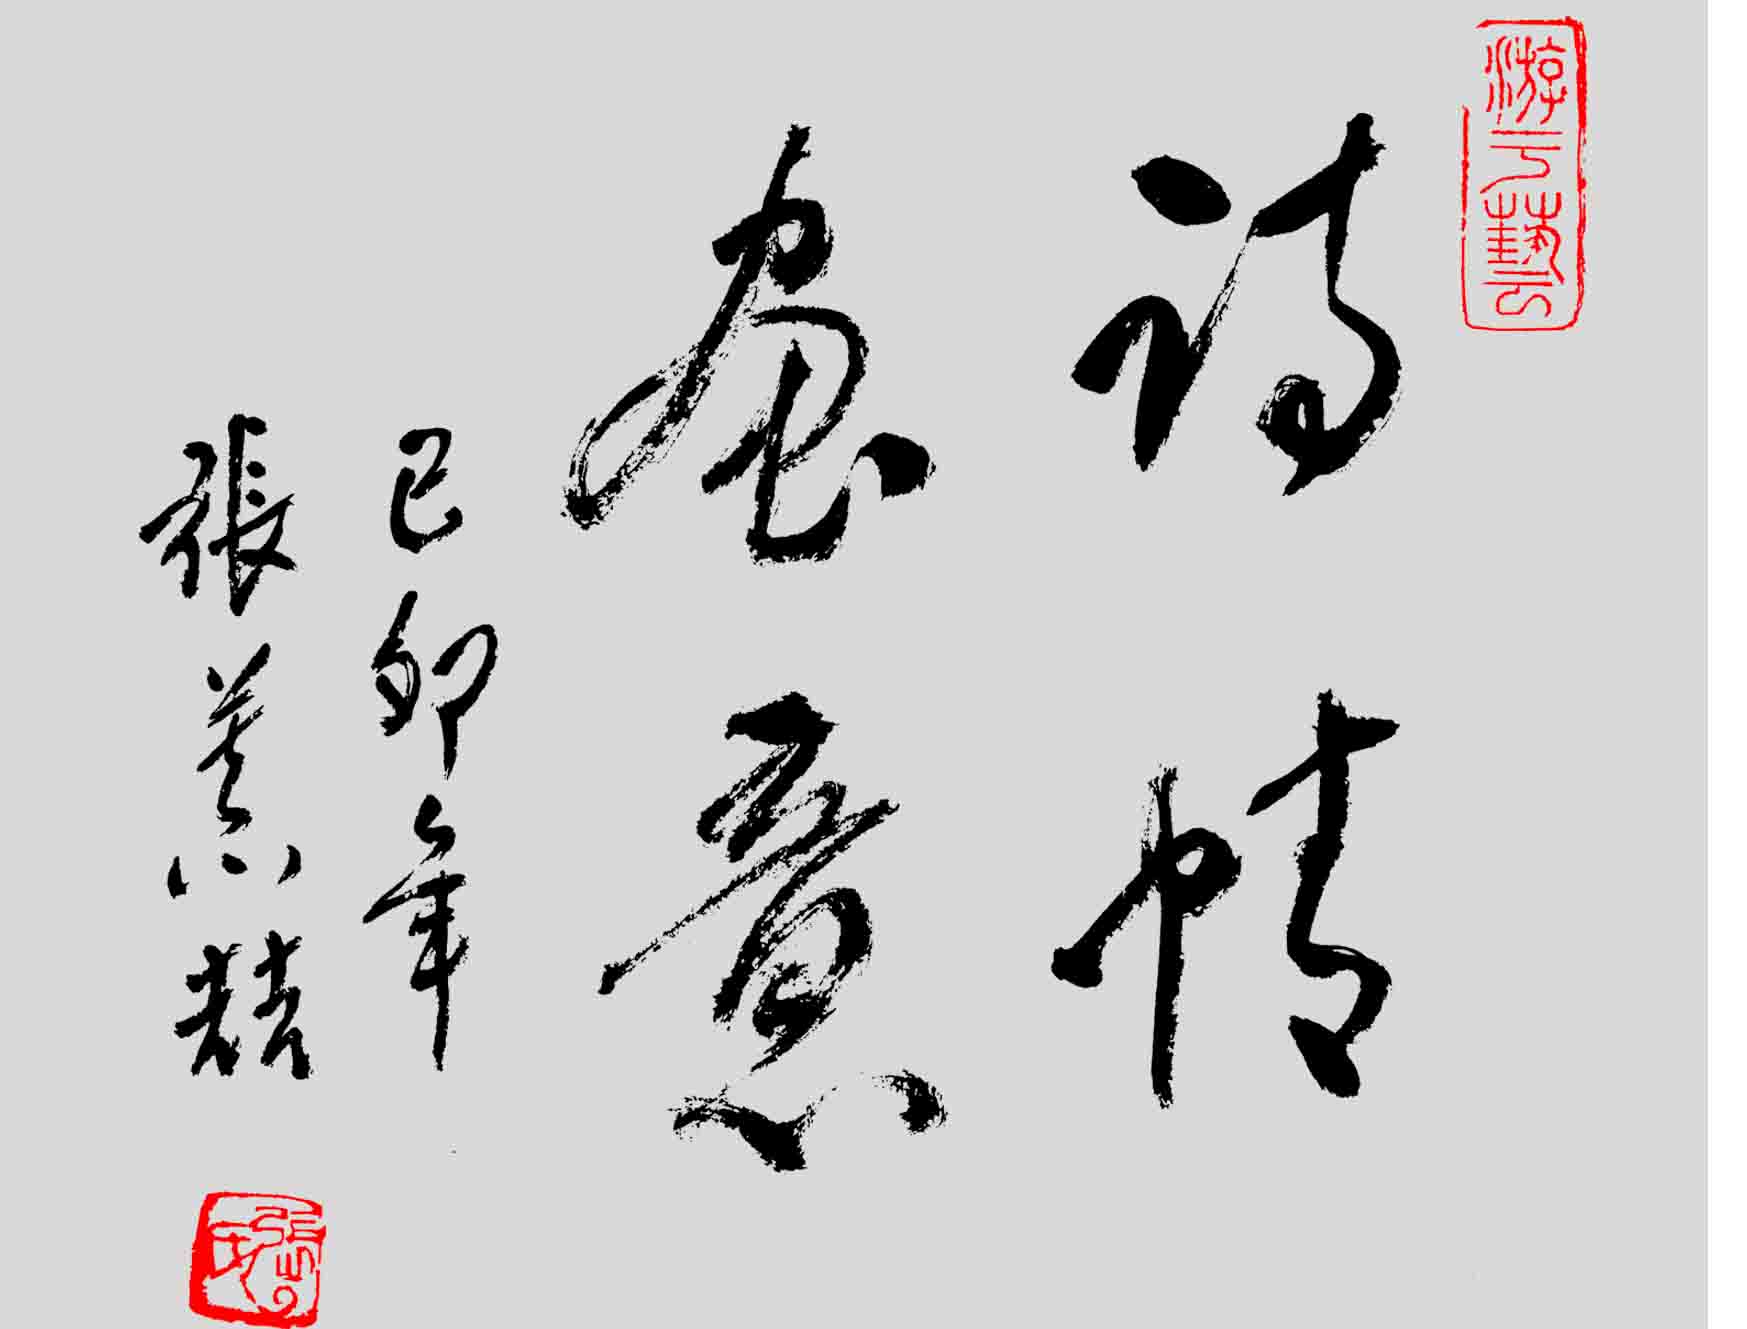 游于藝
詩情
畫意
己卯年
張喆
張氏